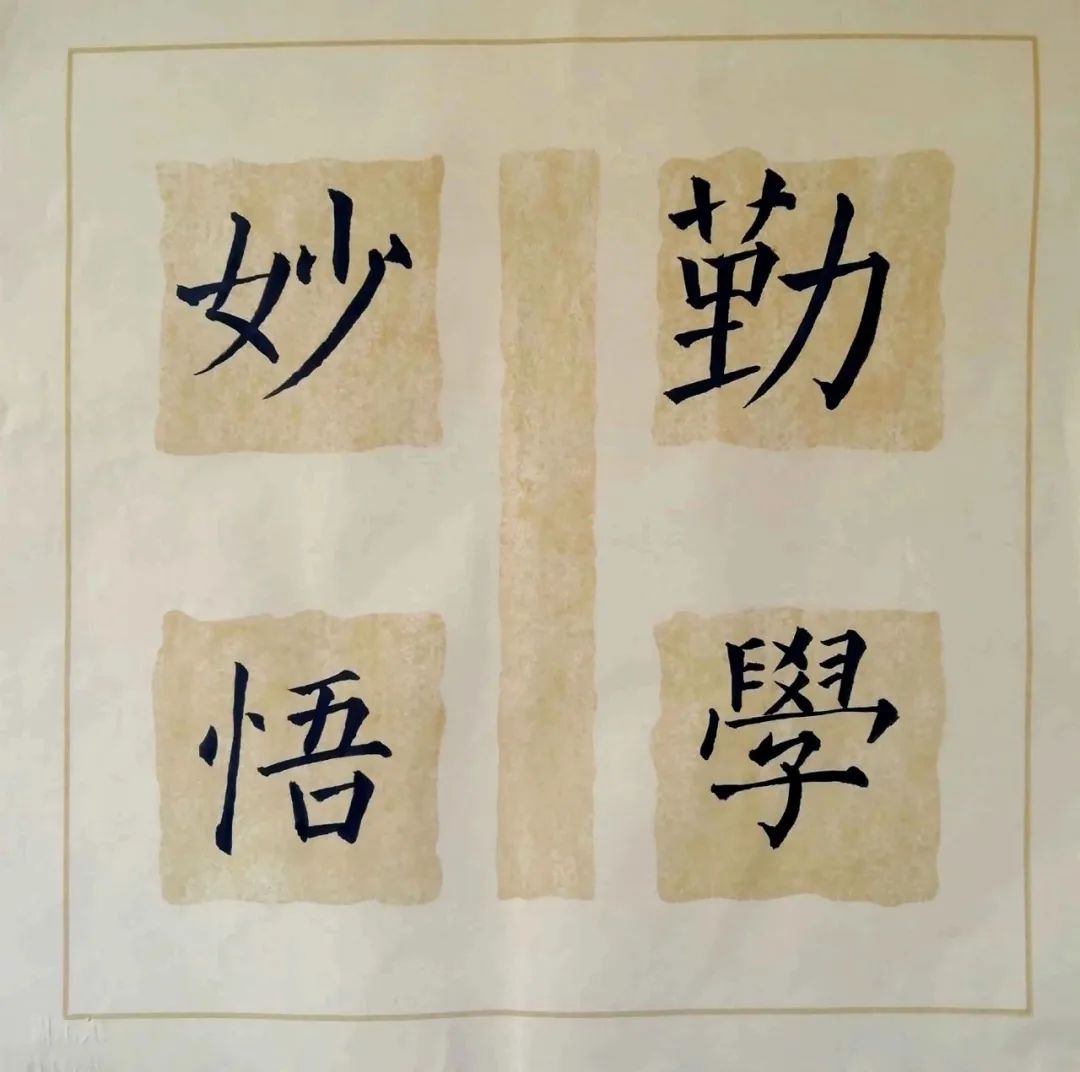 勤學
妙悟